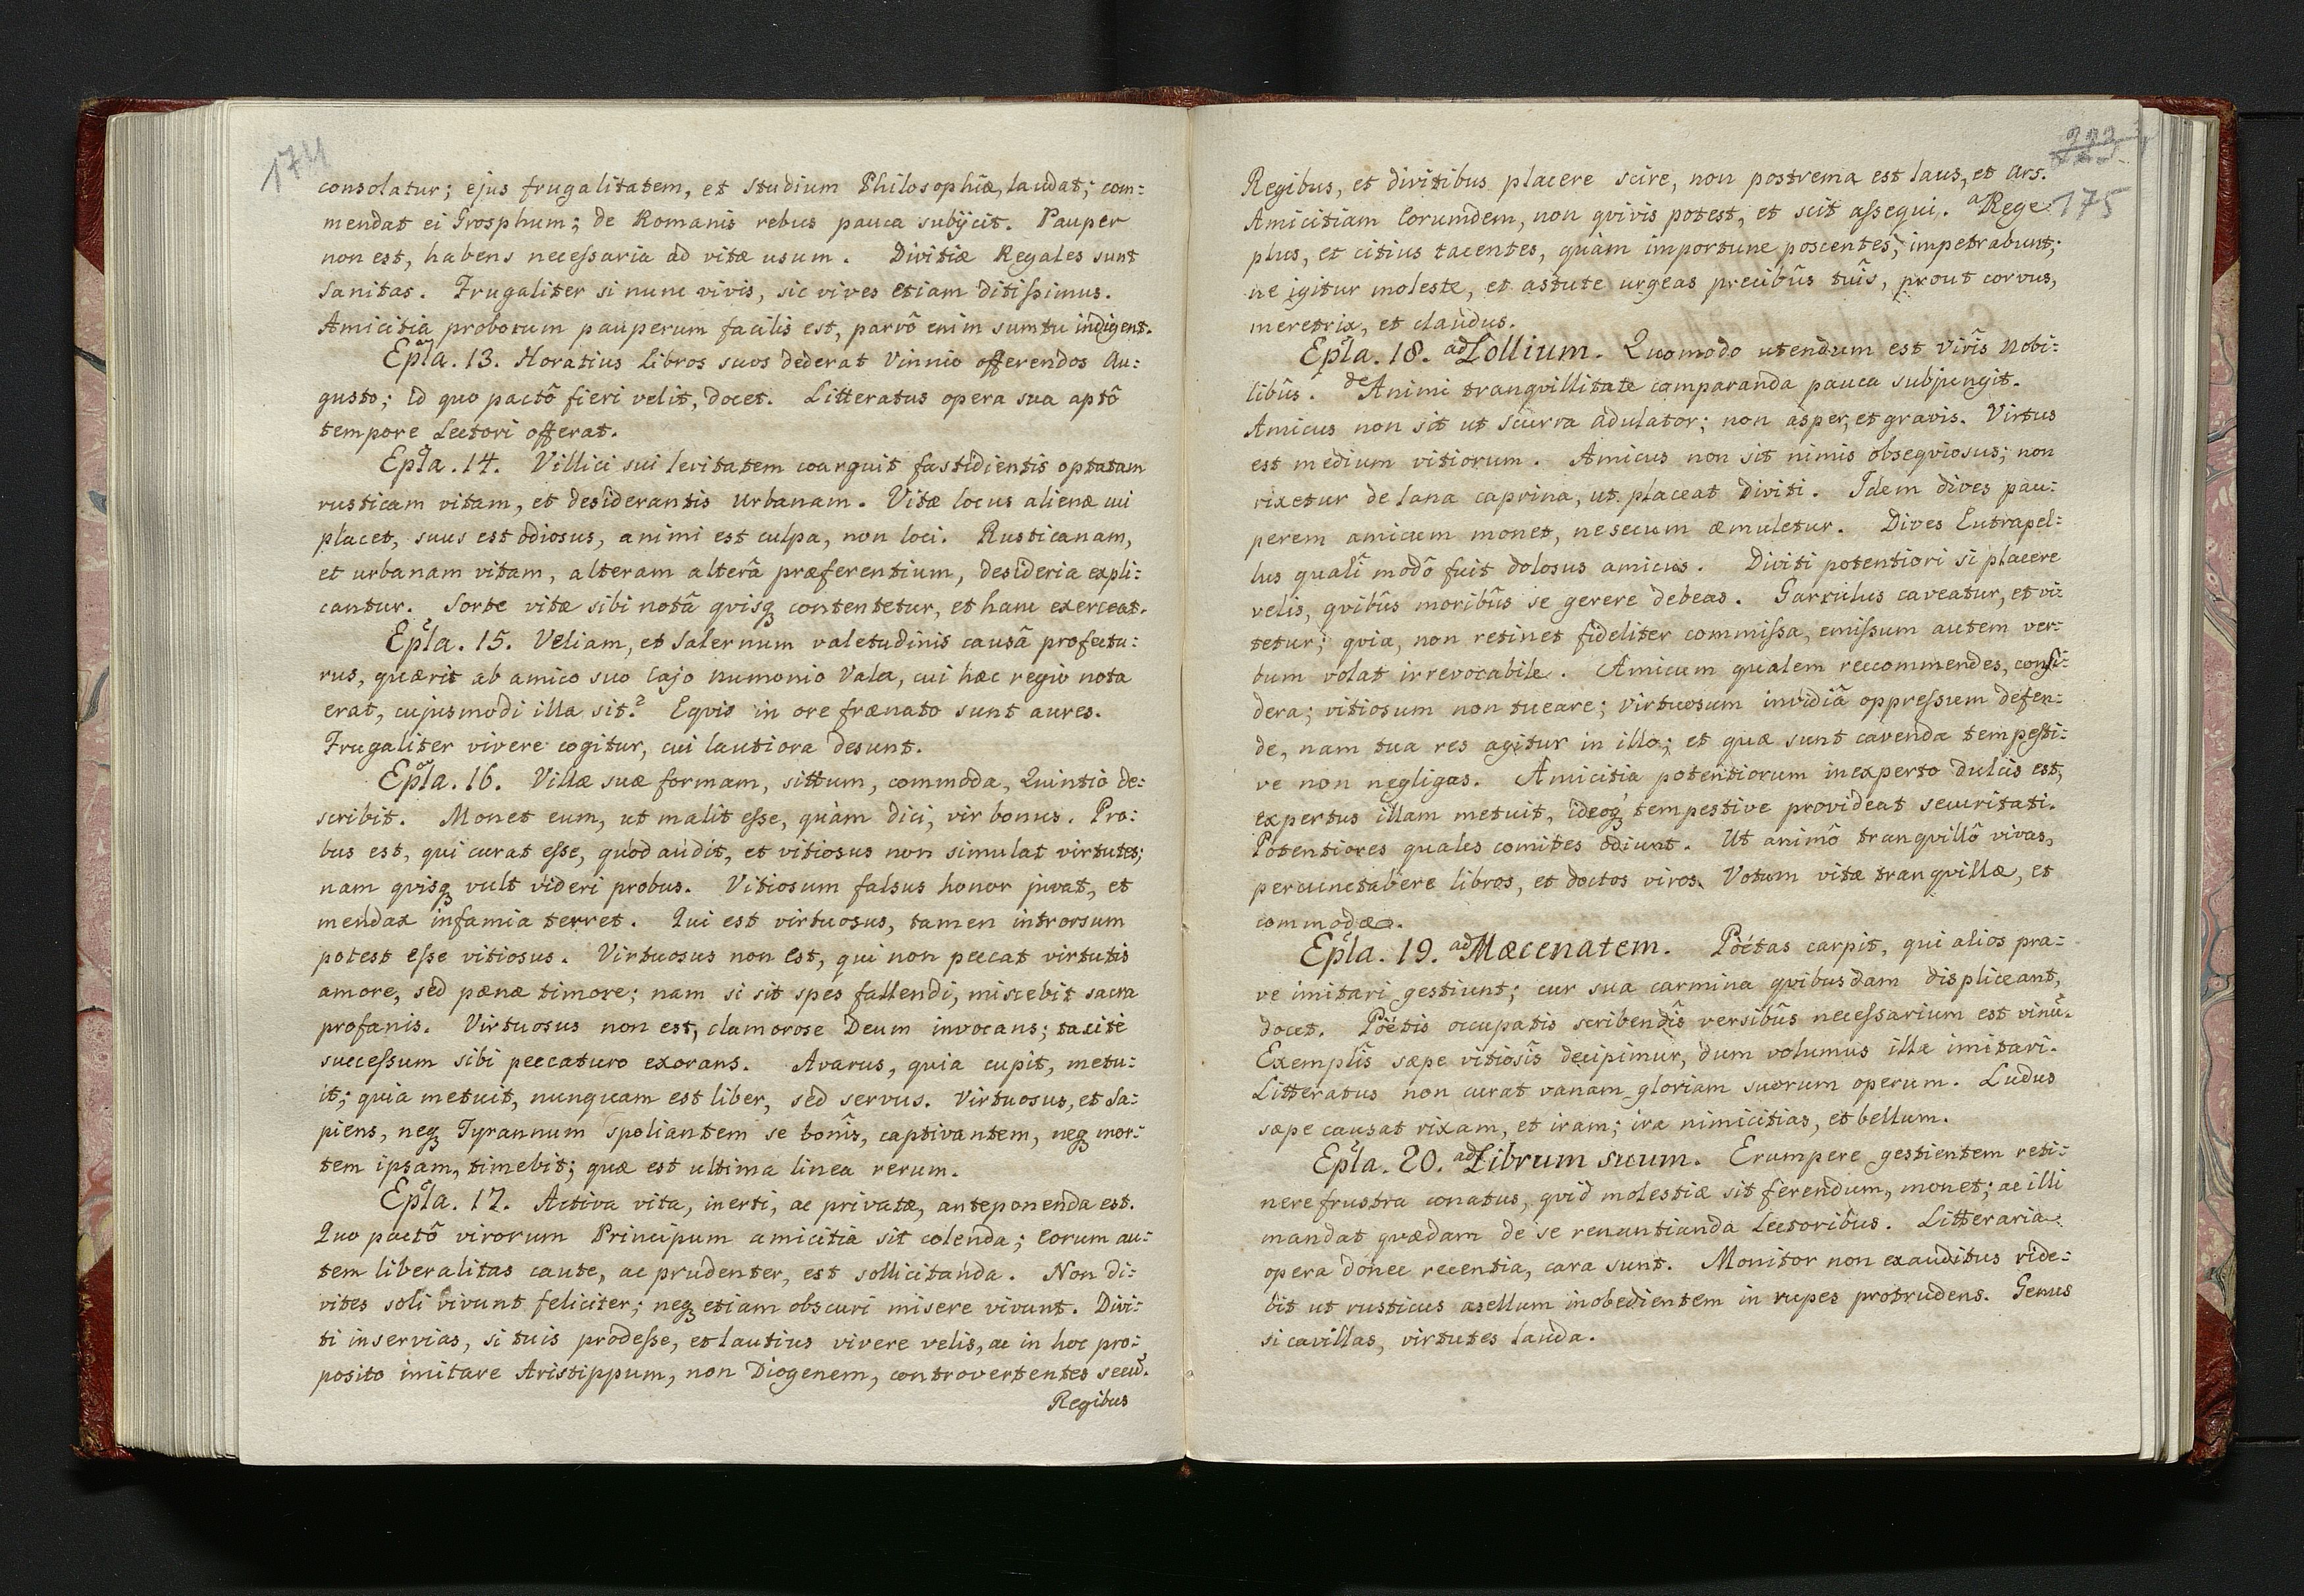 174
consolatur; ejus frugalitatem, et studium Philosophiæ, laudat; com:
mendat ei Grosphum; de Romanis rebus pauca subijcit. Pauper
non est, habens necessaria ad vitæ usum. Divitiæ Regales sunt
Sanitas. Frugaliter si nunc vivis, sic vives etiam ditissimus.
Amicitia proborum pauperum facilis est, parvô enim sumtu indigent.
Epla. 13. Horatius Libros suos dederat Vinnio offerendos Au:
gusto; id quo pactô fieri velit, docet. Litteratus opera sua aptô
tempore Lectori offerat.
Epla. 14. Villici sui levitatem coarguit fastidientis optatam
rusticam vitam, et desiderantis urbanam. Vitæ locus alienæ cui
placet, suus est odiosus, animi est culpa, non loci. Rusticanam,
et urbanam vitam, alteram alterâ præferentium, desideria expli:
cantur. Sorte vitæ sibi notâ qvisq contentetur, et hanc exerceat.
Epla. 15. Veliam, et Salernum valetudinis causâ profectu:
rus, quærit ab amico suo Cajo Numonio Vala, cui hæc regio nota
erat, cujusmodi illa sit? Eqvis in ore frænato sunt aures.
Frugaliter vivere cogitur, cui lautiora desunt.
Epla. 16. Villæ suæ formam, sittum, commoda, Quintio de:
scribit. Monet eum, ut malit esse, quàm dici, vir bonus. Pro:
bus est, qui curat esse, quod audit, et vitiosus non simulat virtutes;
nam qvisq vult videri probus. Vitiosum falsus honor juvat, et
mendax infamia terret. Qui est virtuosus, tamen introrsum
potest esse vitiosus. Virtuosus non est, qui non peccat virtutis
amore, sed pænæ timore; nam si sit spes fallendi, miscebit sacra
profanis. Virtuosus non est, clamorose Deum invocans; tacite
successum sibi peccaturo exorans. Avarus, quia cupit, metu:
it; quia metuit, nunquam est liber, sed servus. Virtuosus, et Sa:
piens, neq Tyrannum spoliantem se bonîs, captivantem, neq mor:
tem ipsam, timebit; quæ est ultima linea rerum.
Epla. 17. Activa vita, inerti, ac privatæ, anteponenda est.
Quo pactô virorum Principum amicitia sit colenda; eorum au:
tem liberalitas caute, ac prudenter, est sollicitanda. Non di:
vites soli vivunt feliciter; neq etiam obscuri misere vivunt. Divi:
ti inservias, si tuis prodesse, et lautius vivere velis, ac in hoc pro:
posito imitare Aristippum, non Diogenem, controvertentes secũ.
Regibus
175
Regibus, et divitibus placere scire, non postrema est laus, et ars.
Amicitiam eorumdem, non qvivis potest, et scit assequi. a Rege
plus, et citius tacentes, quàm importune poscentes, impetrabunt;
ne igitur moleste, et astute urgeas precibûs tuîs, prout corvus,
meretrix, et claudus.
Epla. 18. ad Lollium. Quomodo utendum est Virîs Nobi:
libûs. de Animi tranqvillitate comparanda pauca subjungit.
Amicus non sit ut scurra adulator; non asper, et gravis. Virtus
est medium vitiorum. Amicus non sit nimis obseqviosus; non
rixetur de lana caprina, ut placeat Diviti. Idem dives pau:
perem amicum monet, ne secum æmuletur. Dives Eutrapel:
lus quali modô fuit dolosus amicus. Diviti potentiori si placere
velis, qvibûs moribûs se gerere debeas. Garrulus caveatur, et vi:
tetur; qvia, non retinet fideliter commissa, emissum autem ver:
bum volat irrevocabile. Amicum qualem reccommendes, consi:
dera; vitiosum non tueare; virtuosum invidiâ oppressum defen:
de, nam tua res agitur in illo; et quæ sunt cavenda tempesti:
ve non negligas. Amicitia potentiorum inexperto dulcis est,
expertus illam metuit, ideoq tempestive provideat securitati.
Potentiores quales comites odiunt. Ut animô tranqvillô vivas,
percunctabere libros, et doctos viros. Votum vitæ tranqvillæ, et
commodæ.
Epla. 19. ad Mæcenatem. Poëtas carpit, qui alios pra:
ve imitari gestiunt; cur sua carmina qvibusdam displiceant,
docet. Poëtis occupatis scribendîs versibûs necessarium est vinũ.
Exemplîs sæpe vitiosîs decipimur, dum volumus illa imitari.
Litteratus non curat vanam gloriam suorum operum. Ludus
sæpe causat rixam, et iram; ira nimicitias, et bellum.
Epla. 20. ad Librum suum. Erumpere gestientem reti:
nere frustra conatus, qvid molestiæ sit ferendum, monet; ac illi
mandat qvædam de se renuntianda Lectoribus. Litteraria
opera donec recentia, cara sunt. Monitor non exauditus ride:
bit ut rusticus asellum inobedientem in rupes protrudens. Genus
si cavillas, virtutes lauda.